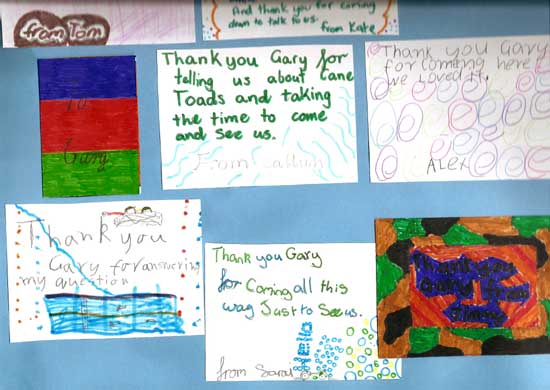 from Tom
And thank you for coming
down to talk to us.
from Kate
To
Gary
Thankyou Gary for
telling us about Cane
Toads and taking
the time to come
and see us.
From Callum
Thank you Gary
for coming here
we loved it.
ALEX
Thank you
Gary for answering
my question
Thank you Gary
for Coming all this
way Just to See us.
from Sarah
Thank you
Gary from